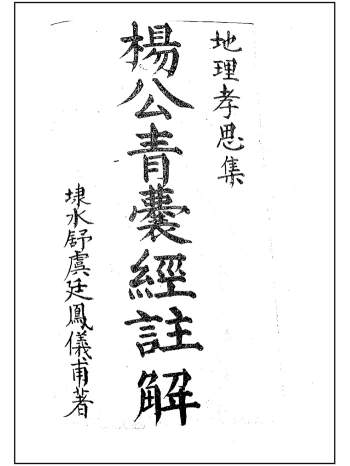 地理孝思集
楊公青囊經註解
埭水舒虞廷鳳儀甫著